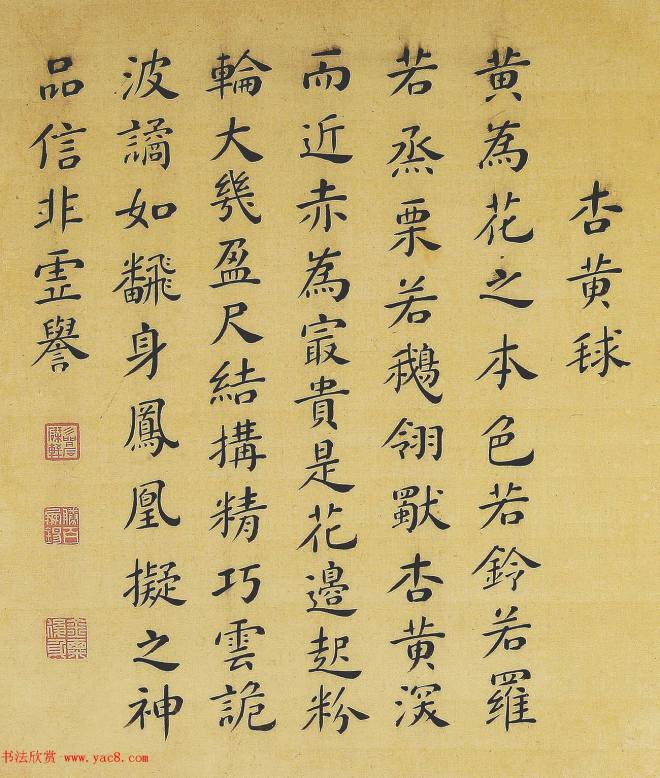 杏黃毬
黃為花之本色若鈴若羅
若烝栗若鵝翎獸杏黃深
而近赤為冣貴是花邊起粉
輪大幾盈尺結搆精巧雲詭
波譎如飜身鳳凰擬之神
品信非虛譽
书法欣赏 www.yac8.com